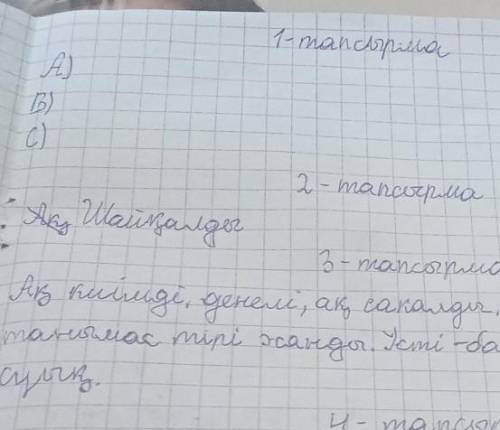 1-тапсырма
А)
В)
С)
2 - тапсырма
Ақ Шайқалды
3 - тапсырма
Ақ киімді, денелі, ақ сақалды,
танымас тірі жанды. Үсті -ба
суық.
4 - тапсы